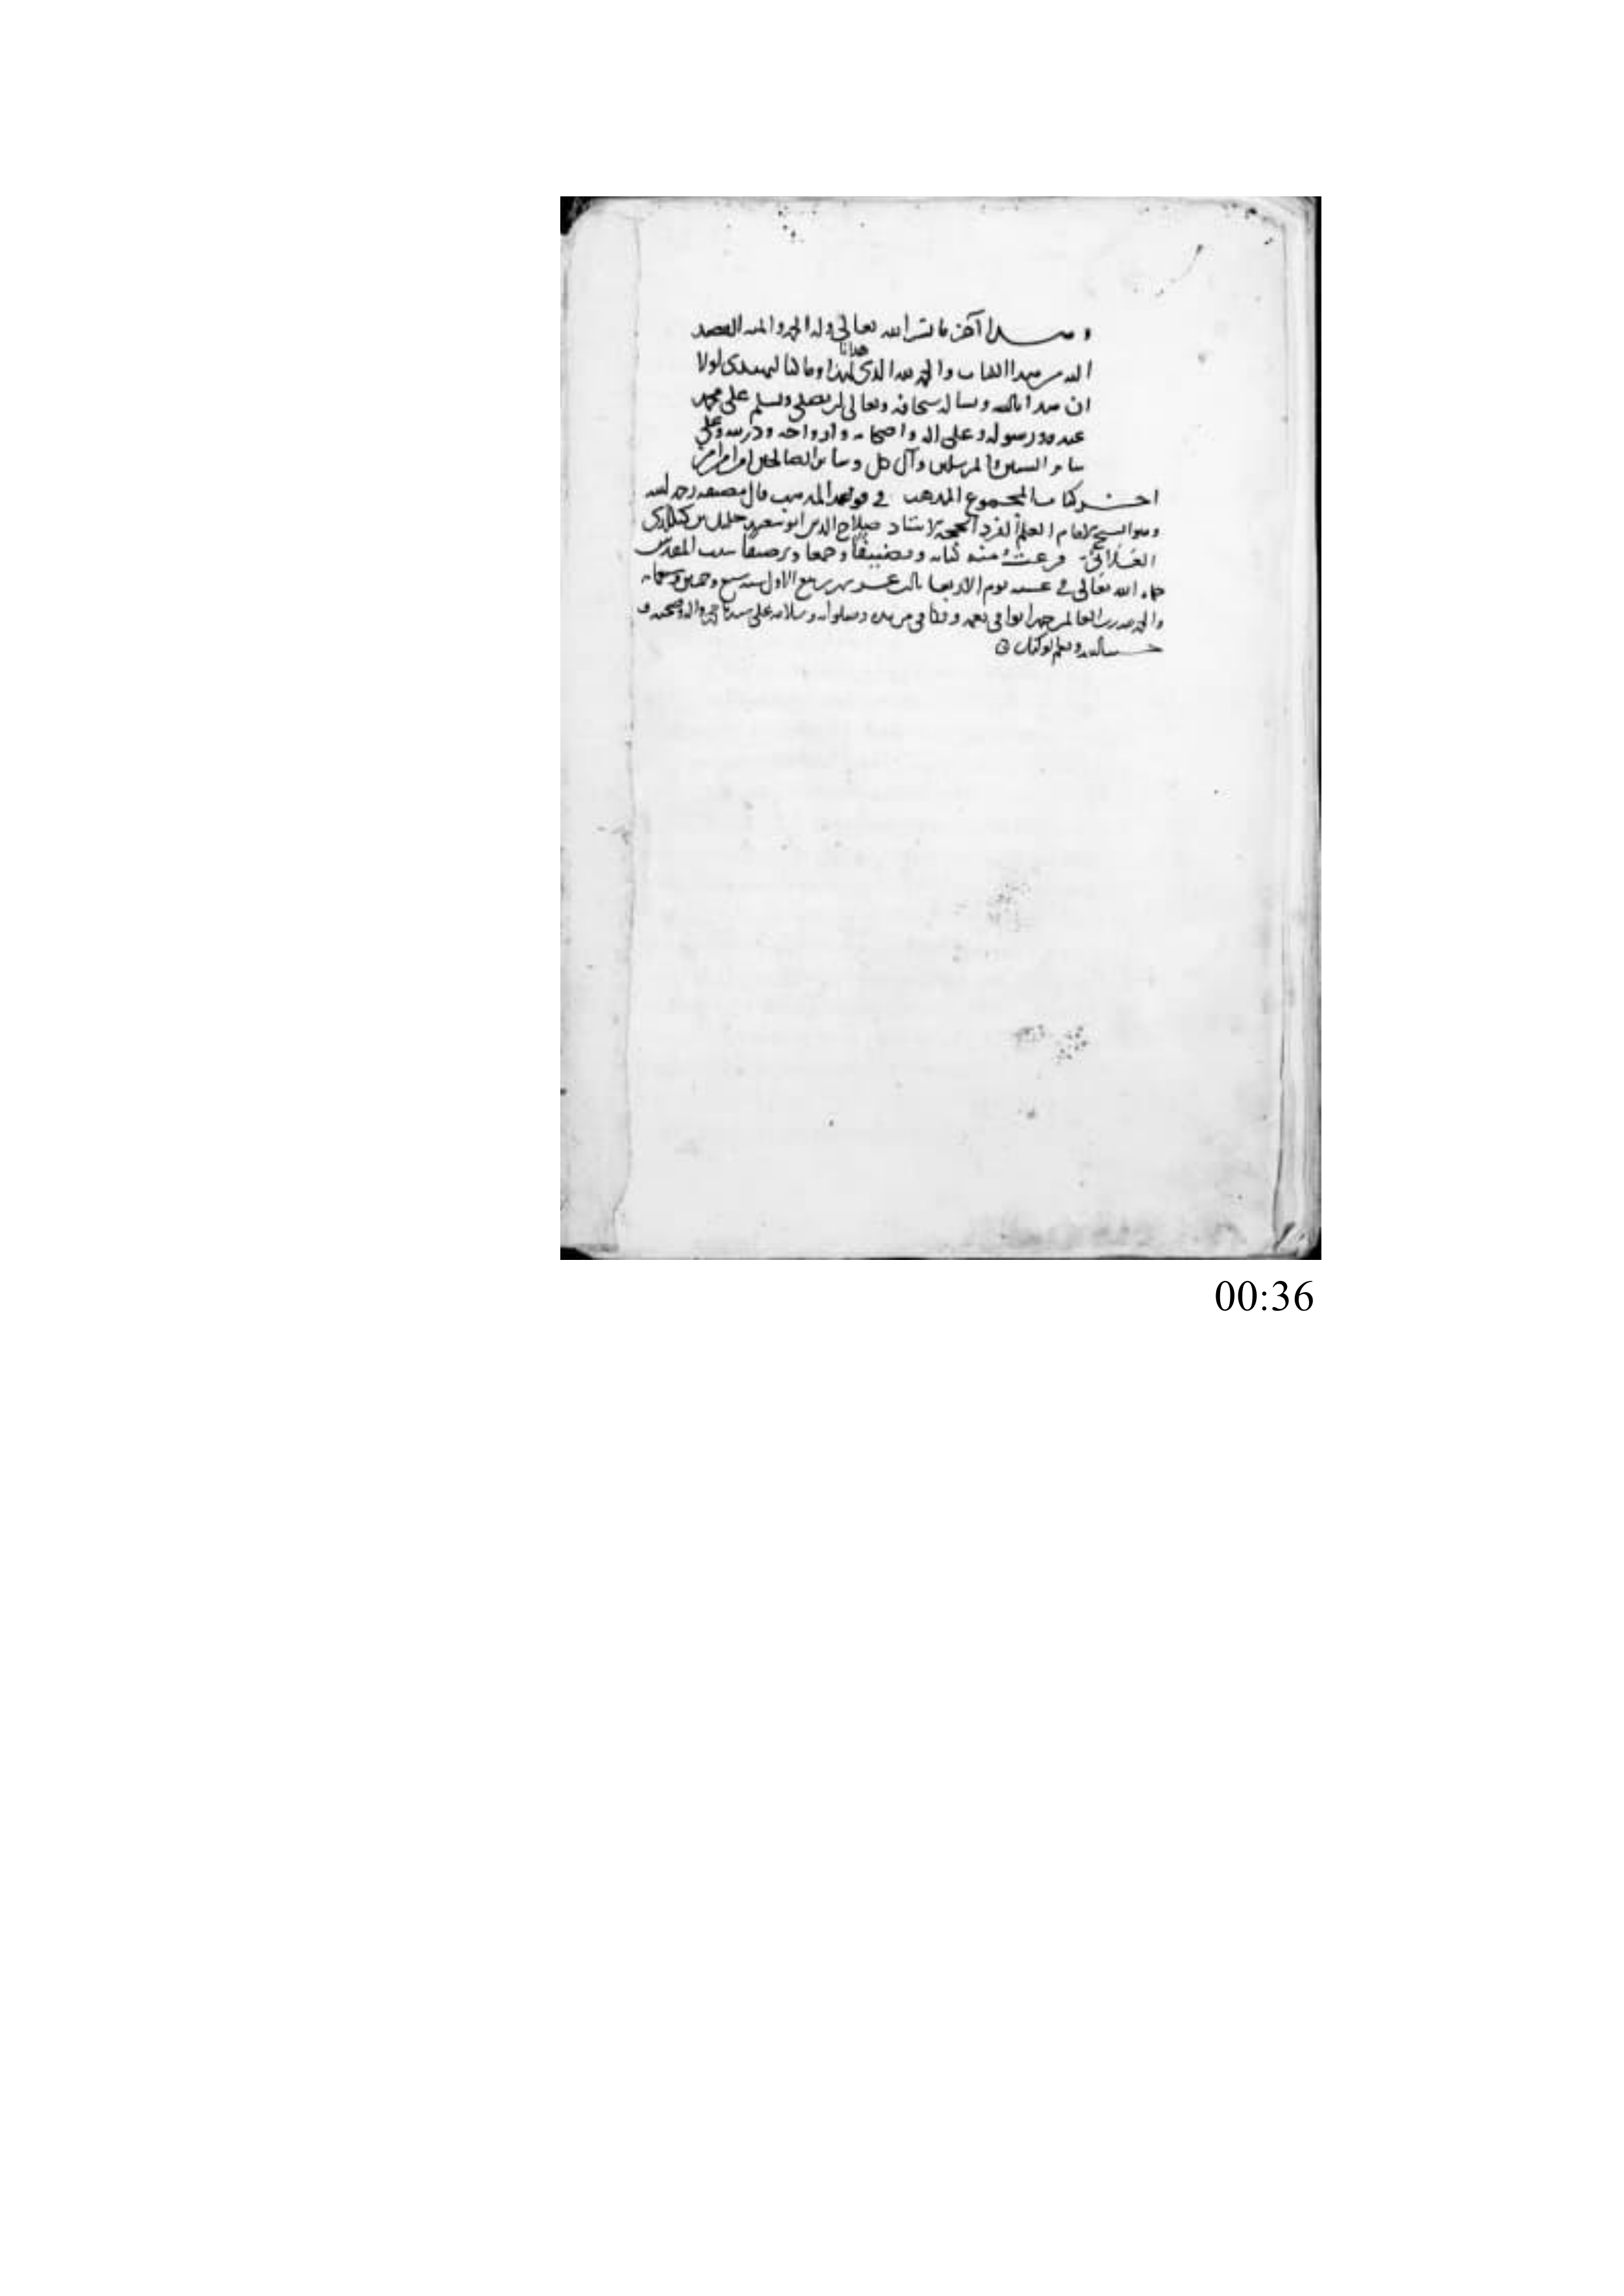 وهذا آخر ما يسر الله تعالى وله الحمد والمنة القصد
اليه من هذا الكتاب والحمد لله الذي هدانا لهذا وما كنا لنهتدي لولا
ان هدانا الله ونساله سبحانه وتعالى ان يصلي ويسلم على محمد
عبده ورسوله وعلى اله واصحابه وازواجه وذريته وعلى
سائر النبيين والمرسلين وآل كل وسائر الصالحين امين امين
اخر كتاب المجموع المذهب في قواعد المذهب قال مصنفه رحمه الله
وهو الشيخ الامام العلم الفرد الحجة الاستاذ صلاح الدين ابو سعيد خليل بن كيكلدي
العلائي فرغت منه كتابة وتصنيفا وجمعا وترصيفا ببيت المقدس
حماه الله تعالى في عشية يوم الاربعا ثالث عشر شهر ربيع الاول سنة سبع وخمسين وسبعماية
والحمد لله رب العالمين حمدا يوافي نعمه ويكافي مزيده وصلواته وسلامه على سيدنا محمد واله وصحبه و
حسبنا الله ونعم الوكيل
00:36